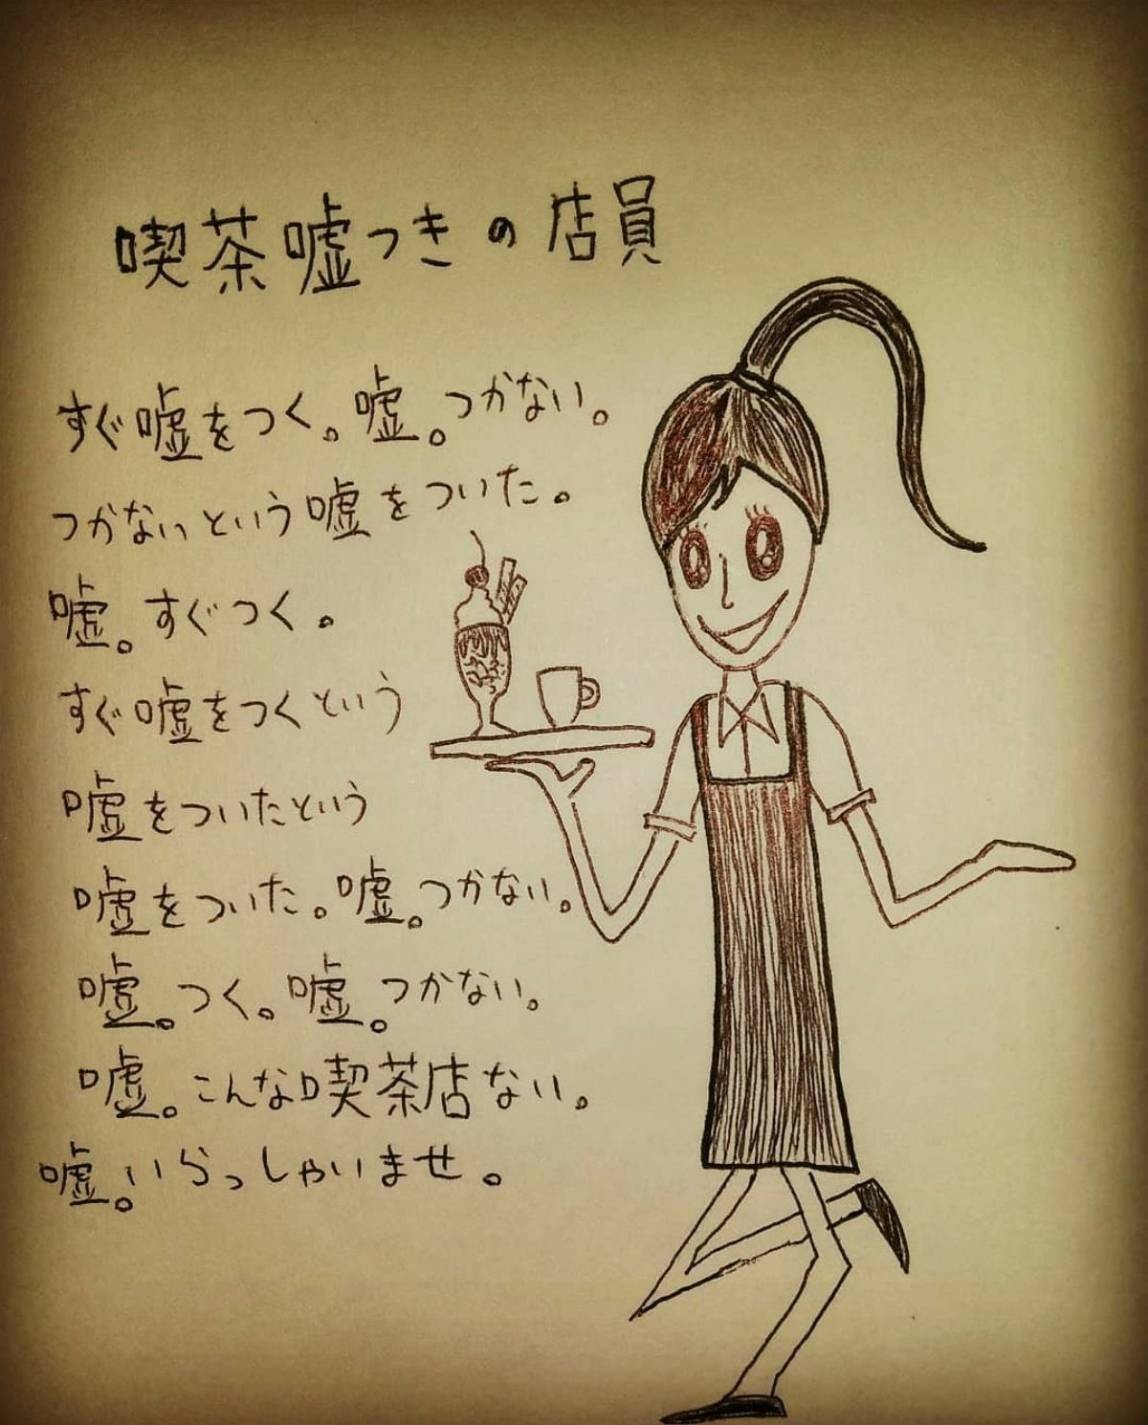 喫茶嘘つきの店員
すぐ嘘をつく。嘘。つかない。
つかないという嘘をついた。
嘘。すぐつく。
すぐ嘘をつくという
嘘をついたという
嘘をついた。嘘。つかない。
嘘。つく。嘘。つかない。
嘘。こんな喫茶店ない。
嘘。いらっしゃいませ。